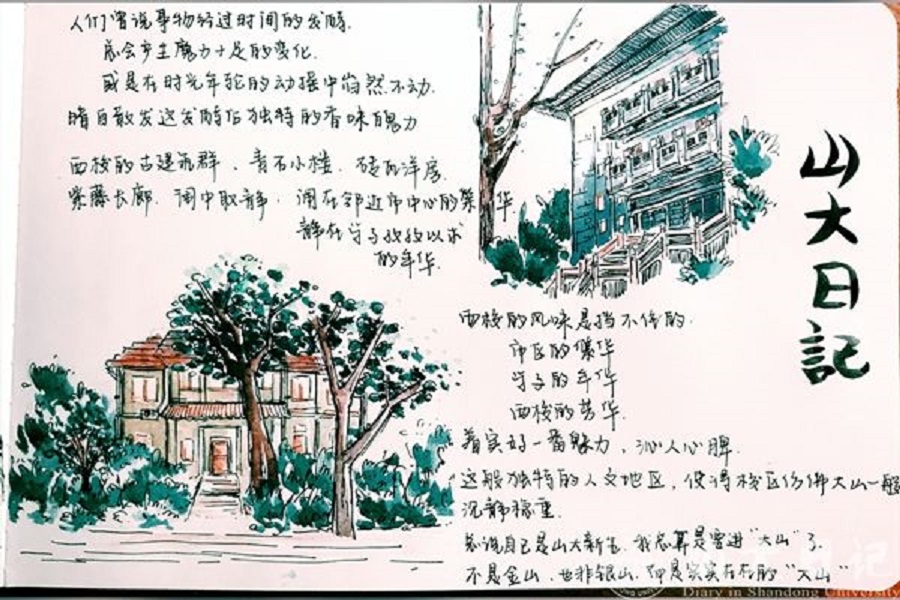 人们曾说事物经过时间的发酵
总会产生魔力十足的变化.
或是在时光年轮的动摇中岿然不动.
暗自散发这发酵后独特的香味魄力
西校的古建筑群、青石小楼、砖瓦洋房.
紫藤长廊.闹中取静.闹在邻近市中心的繁华
静在学子孜孜以求
的年华.
山大日記
西校的风味是挡不住的.
市区的繁华
学子的年华
西校的芳华.
着实好一番魅力,沁人心脾.
这般独特的人文地区,使得校区仿佛大山一般
沉静稳重.
总说自己是山大新生.我总算是窝进“大山”了.
不是金山.也非银山.却是实实在在的“大山”
Diary in Shandong University